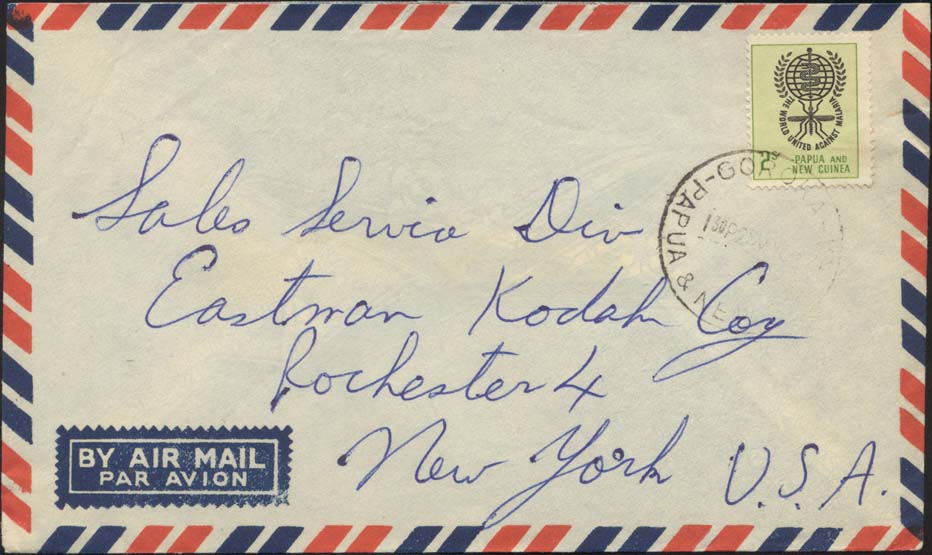 THE WORLD UNITED AGAINST MALARIA
2s PAPUA AND
NEW GUINEA
GOROKA
PAPUA & NE
Sales Service Div
Eastman Kodak Coy
Rochester 4
New York U.S.A.
BY AIR MAIL
PAR AVION